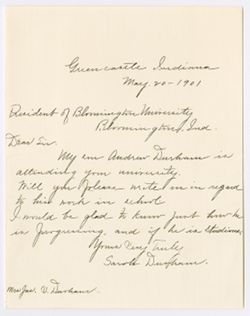 Greencastle Indiana
May. 20 - 1901
President of Bloomington University
Bloomington, Ind.
Dear Sir.
My son Andrew Durham is
attending your university.
Will you please write in regard
to his work in school
I would be glad to know just how he
is progressing, and if he is studious.
Yours Very Truly
Sarah Durham.
Mrs Jas. V. Durham.